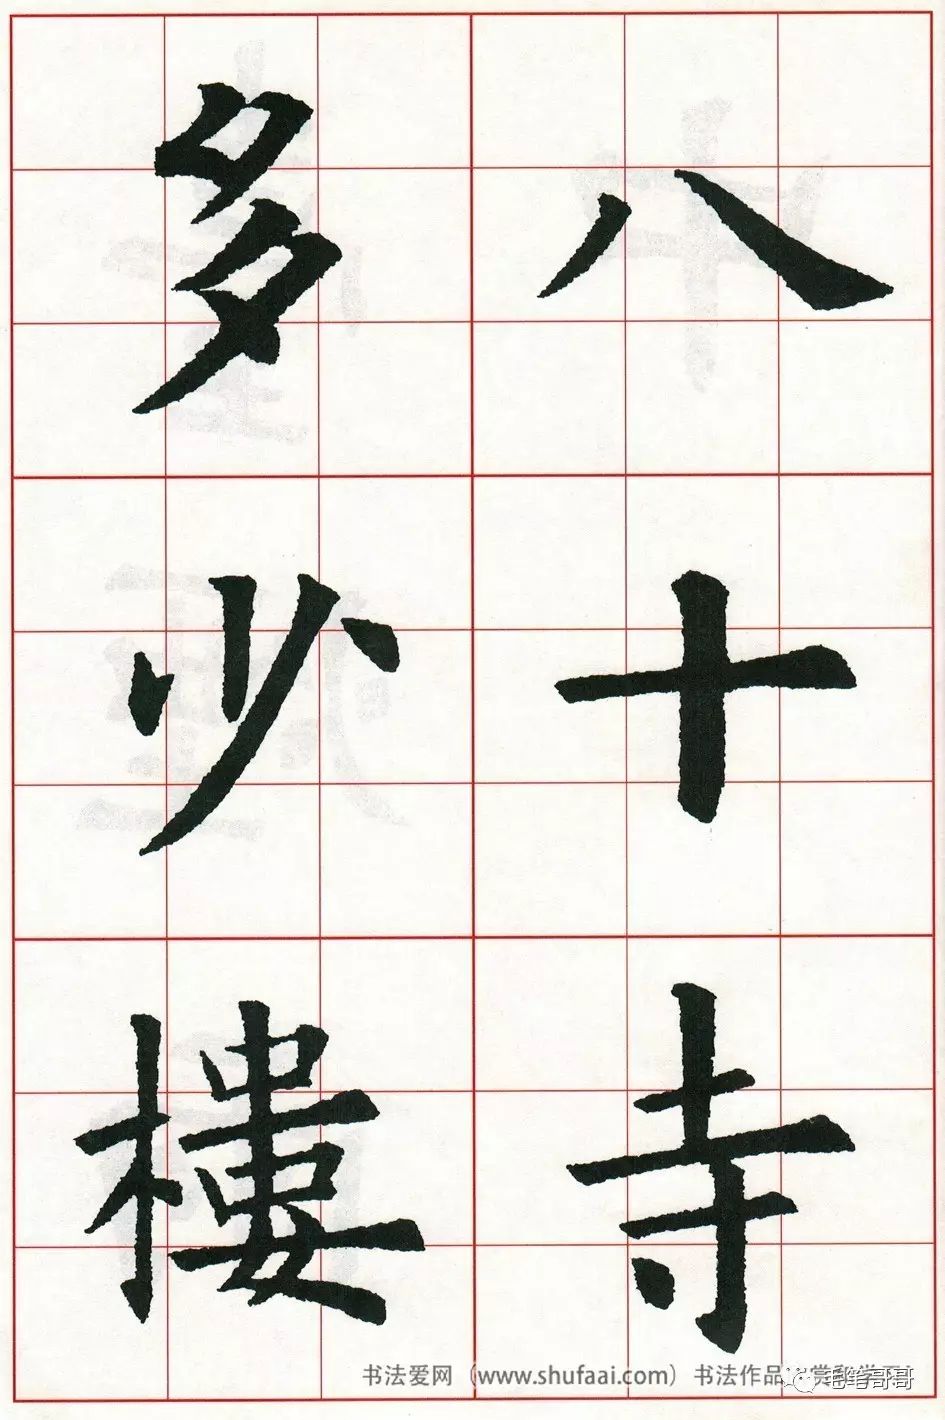 八十寺
多少樓
书法爱网（www.shufaai.com）书法作品
毛笔哥哥